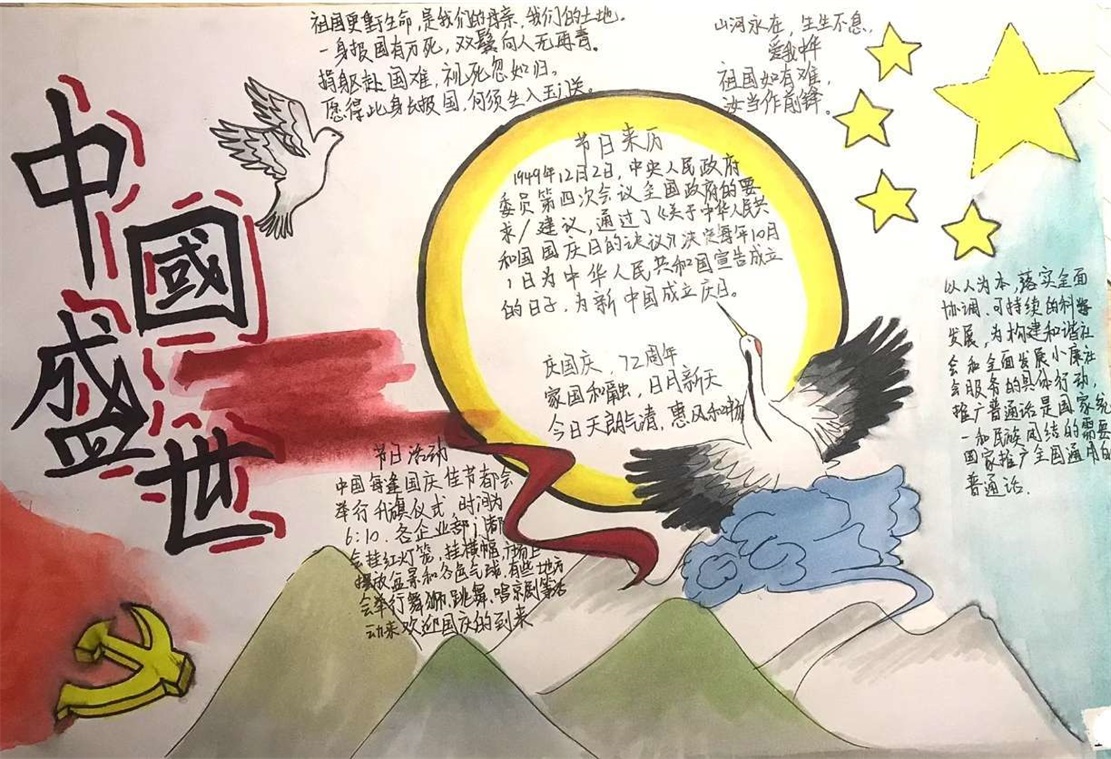 中國盛世
祖国更重于生命,是我们的母亲,我们的土地。
一身报国有万死,双鬓向人无再青。
捐躯赴国难,视死忽如归。
愿得此身长报国,何须生入玉门关。
山河永在,生生不息,
爱我中华
祖国如有难,
汝当作前锋。
节日来历
1949年12月2日,中央人民政府
委员第四次会议全国政府的要
求/建议,通过了《关于中华人民共
和国国庆日的决议》决定每年10月
1日为中华人民共和国宣告成立
的日子,为新中国成立庆日。
庆国庆,72周年
家国和融,日月新天
今日天朗气清,惠风和畅
以人为本,落实全面
协调、可持续的科学
发展,为构建和谐社
会和全面发展小康社
会服务的具体行动,
推广普通话是国家统
一和民族团结的需要
国家推广全国通用的
普通话.
节日活动
中国每逢国庆佳节都会
举行升旗仪式,时间为
6:10.各企业部门都
会挂红灯笼,挂横幅,广场上
摆放盆景和各色气球,有些地方
会举行舞狮、跳舞、唱京剧等活
动来欢迎国庆的到来